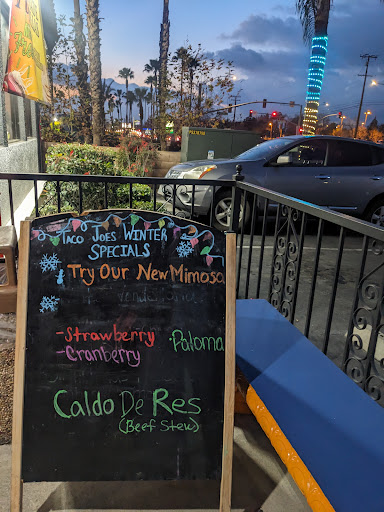 Taco Joes Winter
Specials
Try Our New Mimosa
-Strawberry
-Cranberry
Paloma
Caldo De Res
(Beef Stew)